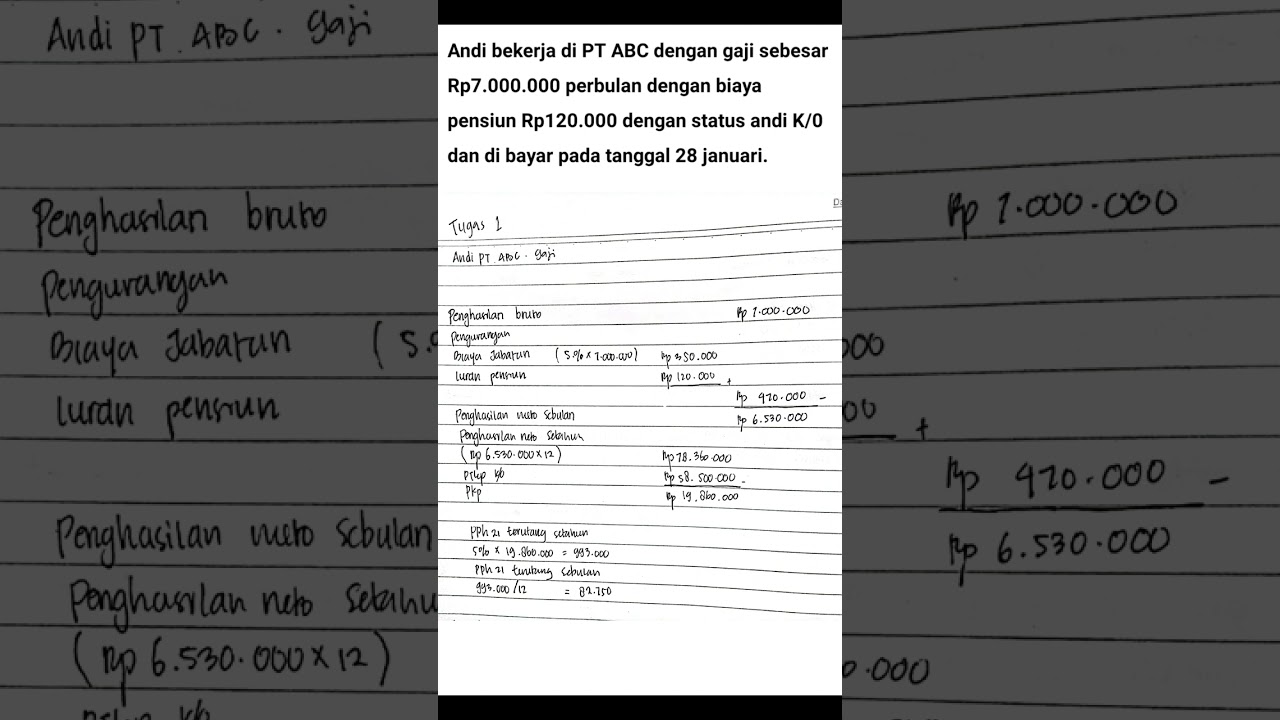 Andi bekerja di PT ABC dengan gaji sebesar
Rp7.000.000 perbulan dengan biaya
pensiun Rp120.000 dengan status andi K/0
dan di bayar pada tanggal 28 januari.
Tugas 1
Andi PT. ABC. gaji
Penghasilan bruto Rp 7.000.000
Pengurangan
Biaya Jabatan (5% x 7.000.000) Rp 350.000
Iuran pensiun Rp 120.000 +
Rp 470.000 -
Penghasilan neto sebulan Rp 6.530.000
Penghasilan neto setahun
(Rp 6.530.000 x 12) Rp 78.360.000
PTKP K/0 Rp 58.500.000 -
PKP Rp 19.860.000
PPh 21 terutang setahun
5% x 19.860.000 = 993.000
PPh 21 terutang sebulan
993.000/12 = 82.750